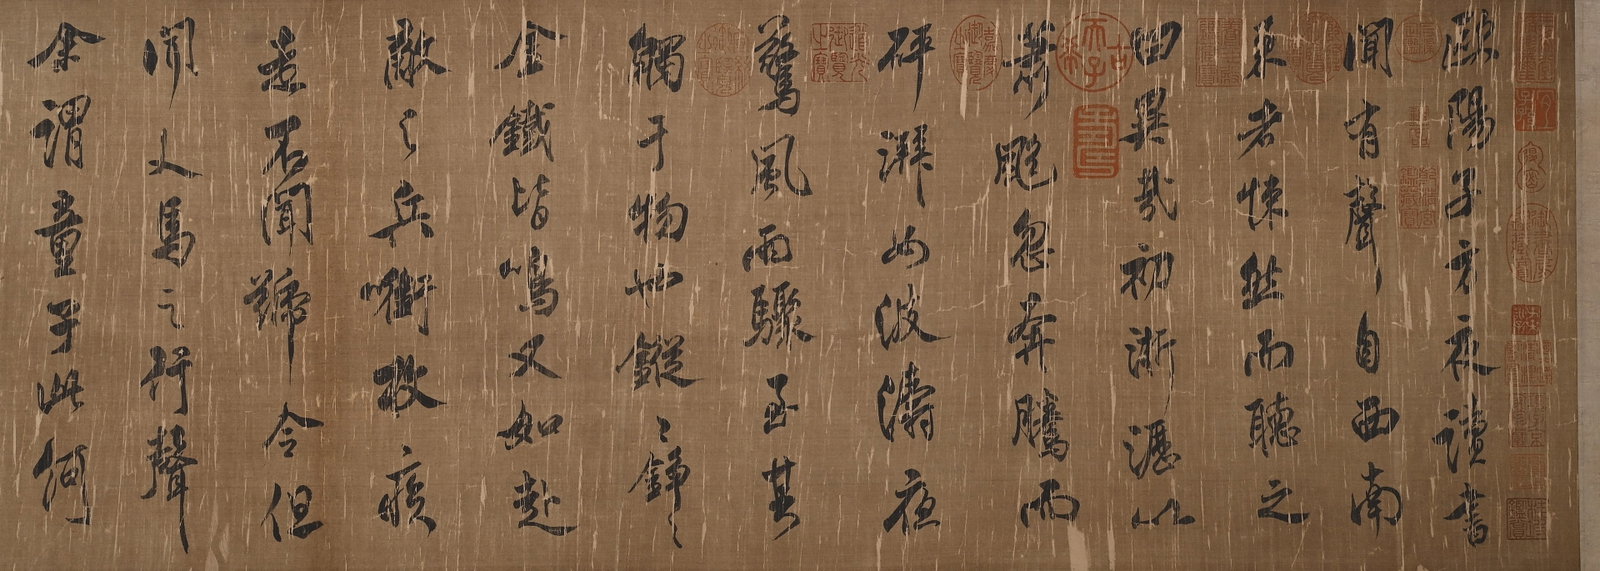 歐陽子方夜讀書
聞有聲自西南
來者悚然而聽之
曰異哉初淅瀝以
蕭颯忽奔騰而
砰湃如波濤夜
驚風雨驟至其
觸于物也鏦〻錚〻
金鐵皆鳴又如赴
敵之兵㘅枚疾
走不聞號令但
聞人馬之行聲
余謂童子此何
古希天子
壽
嘉慶御覽之寶
道光御覽之寶